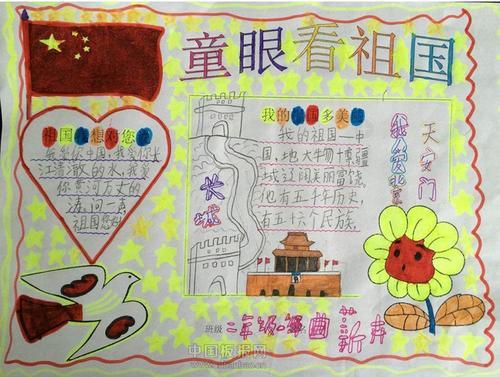 童眼看祖国
祖国我想对您说
我爱你中国,我爱你长
江清澈的水,我爱
你黄河万丈的
涛,问一声
祖国您好
我的祖国多美丽
我的祖国——中
国,地大物博,疆
域辽阔美丽富饶,
他有五千年历史,
有五十六个民族。
长城
天安门
我爱北京
班级
二年级一班
中国板报网